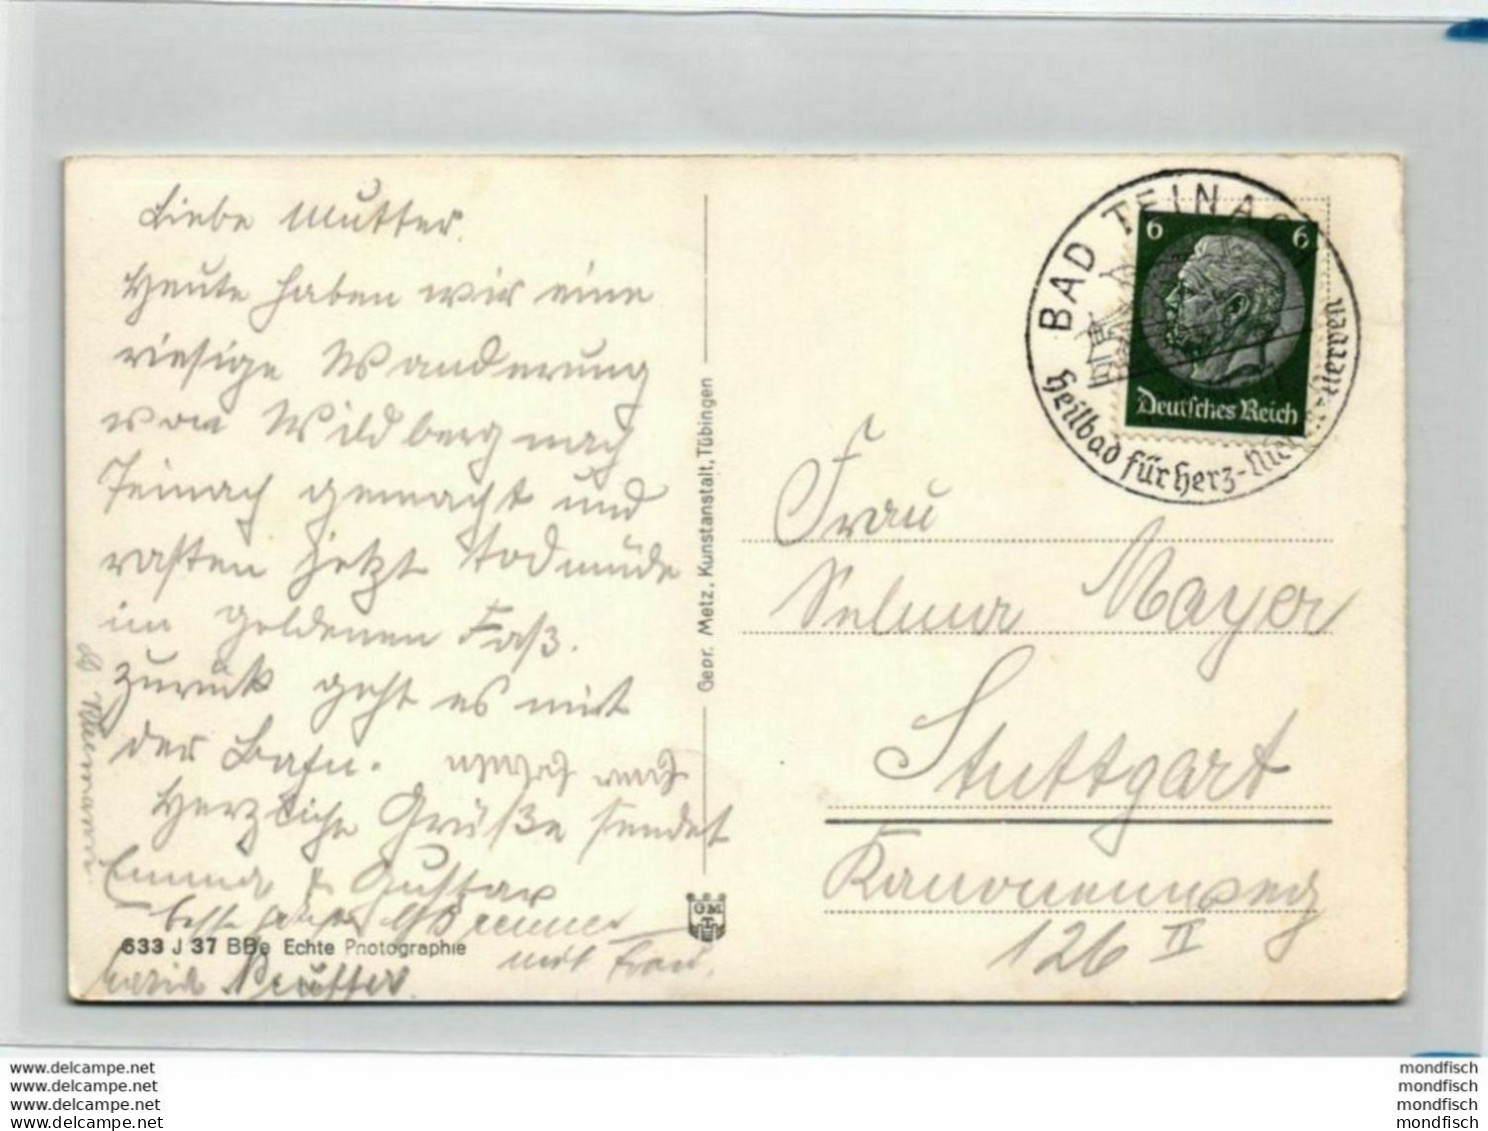 Liebe Mutter.
Heute haben wir eine
riesige Wanderung
von Wildberg nach
Teinach gemacht und
rasten jetzt todmüde
im goldenen Faß.
Zurück geht es mit
der Bahn.
Herzliche Grüße sendet
Emma & Gustav
beste
mit Frau.
633 J 37 BBe Echte Photographie
Geor. Metz, Kunstanstalt, Tübingen
GM
BAD TEINACH
Heilbad für Herz-Nieren-Nerven
6 6
Deutsches Reich
Frau
Selma Mayer
Stuttgart
Kanonenweg
126 II
www.delcampe.net
www.delcampe.net
www.delcampe.net
www.delcampe.net
mondfisch
mondfisch
mondfisch
mondfisch